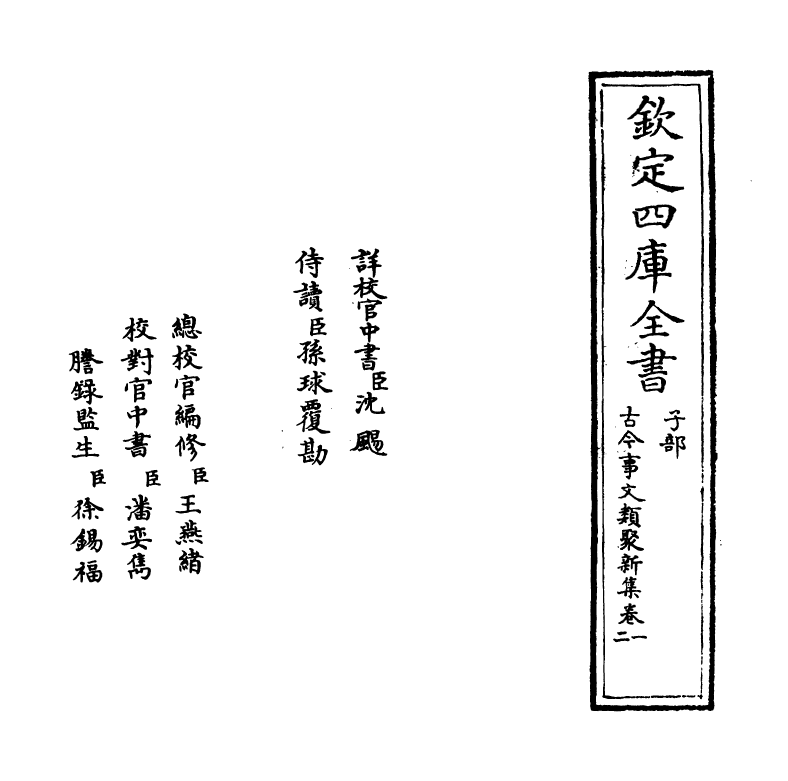 欽定四庫全書
子部
古今事文類聚新集卷一二
詳校官中書臣沈颺
侍讀臣孫球覆勘
總校官編修臣王燕緒
校對官中書臣潘奕雋
謄錄監生臣徐錫福